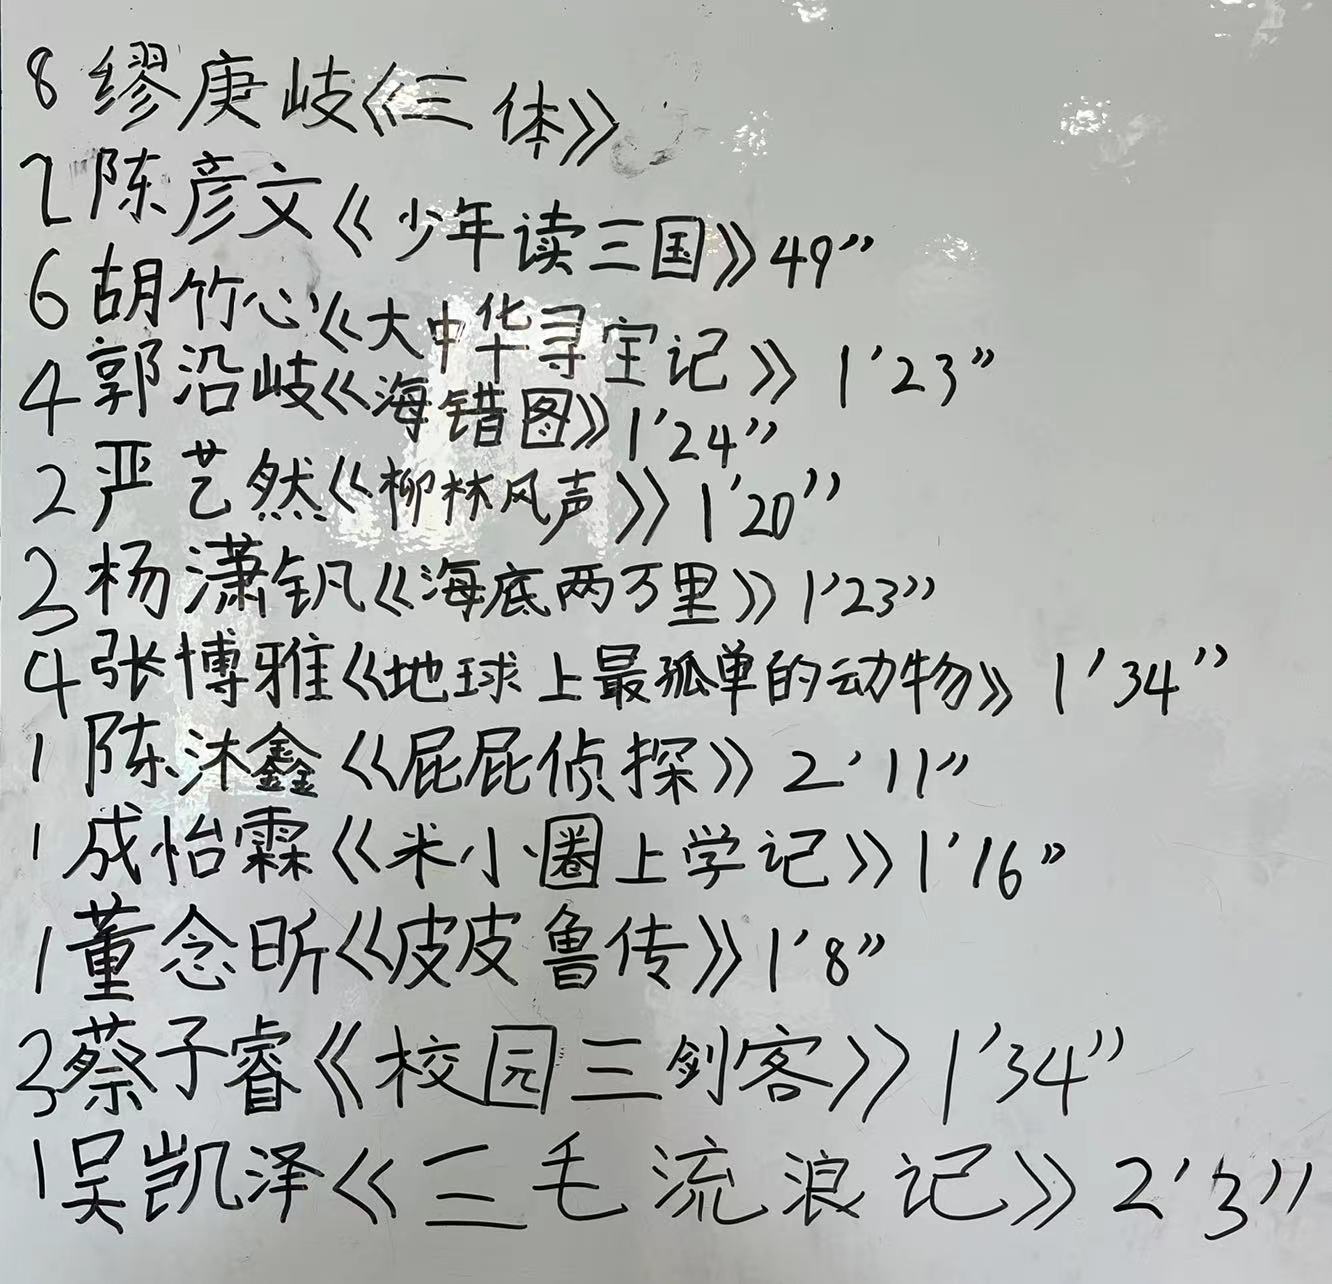 8 缪庚岐《三体》
2 陈彦文《少年读三国》49”
6 胡竹心《大中华寻宝记》1’23”
4 郭沿岐《海错图》1’24”
2 严艺然《柳林风声》1’20”
3 杨潇钒《海底两万里》1’23”
4 张博雅《地球上最孤单的动物》1’34”
1 陈沐鑫《屁屁侦探》2’11”
1 成怡霖《米小圈上学记》1’16”
1 董念昕《皮皮鲁传》1’8”
3 蔡子睿《校园三剑客》1’34”
1 吴凯泽《三毛流浪记》2’3”